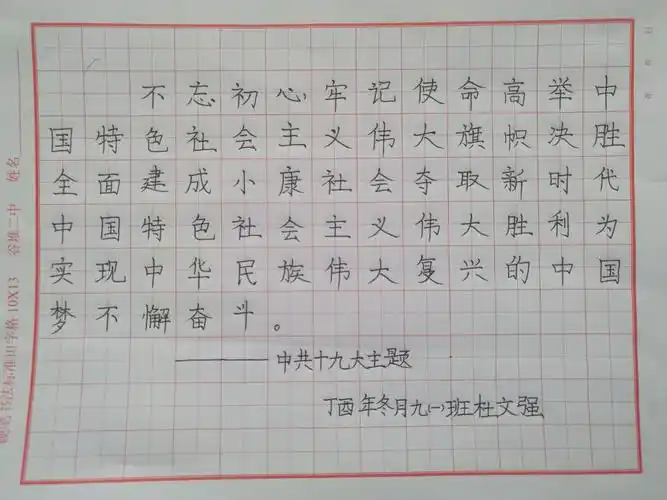 不忘初心牢记使命高举中
国特色社会主义伟大旗帜决胜
全面建成小康社会夺取新时代
中国特色社会主义伟大胜利为
实现中华民族伟大复兴的中国
梦不懈奋斗。
——中共十九大主题
丁酉年冬月九(一)班杜文强
硬笔书法标准田字格10X13 谷堆二中 姓名